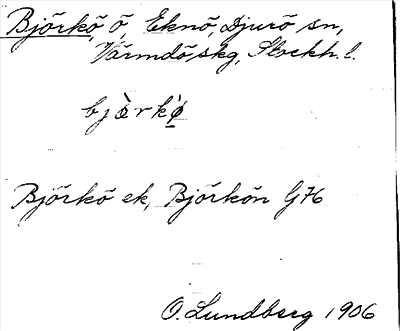 Björkö, ö, Eknö, Djurö sn,
Värmdö skg, Stockh. l.
Björkö ek, Björkön G76
O. Lundberg 1906